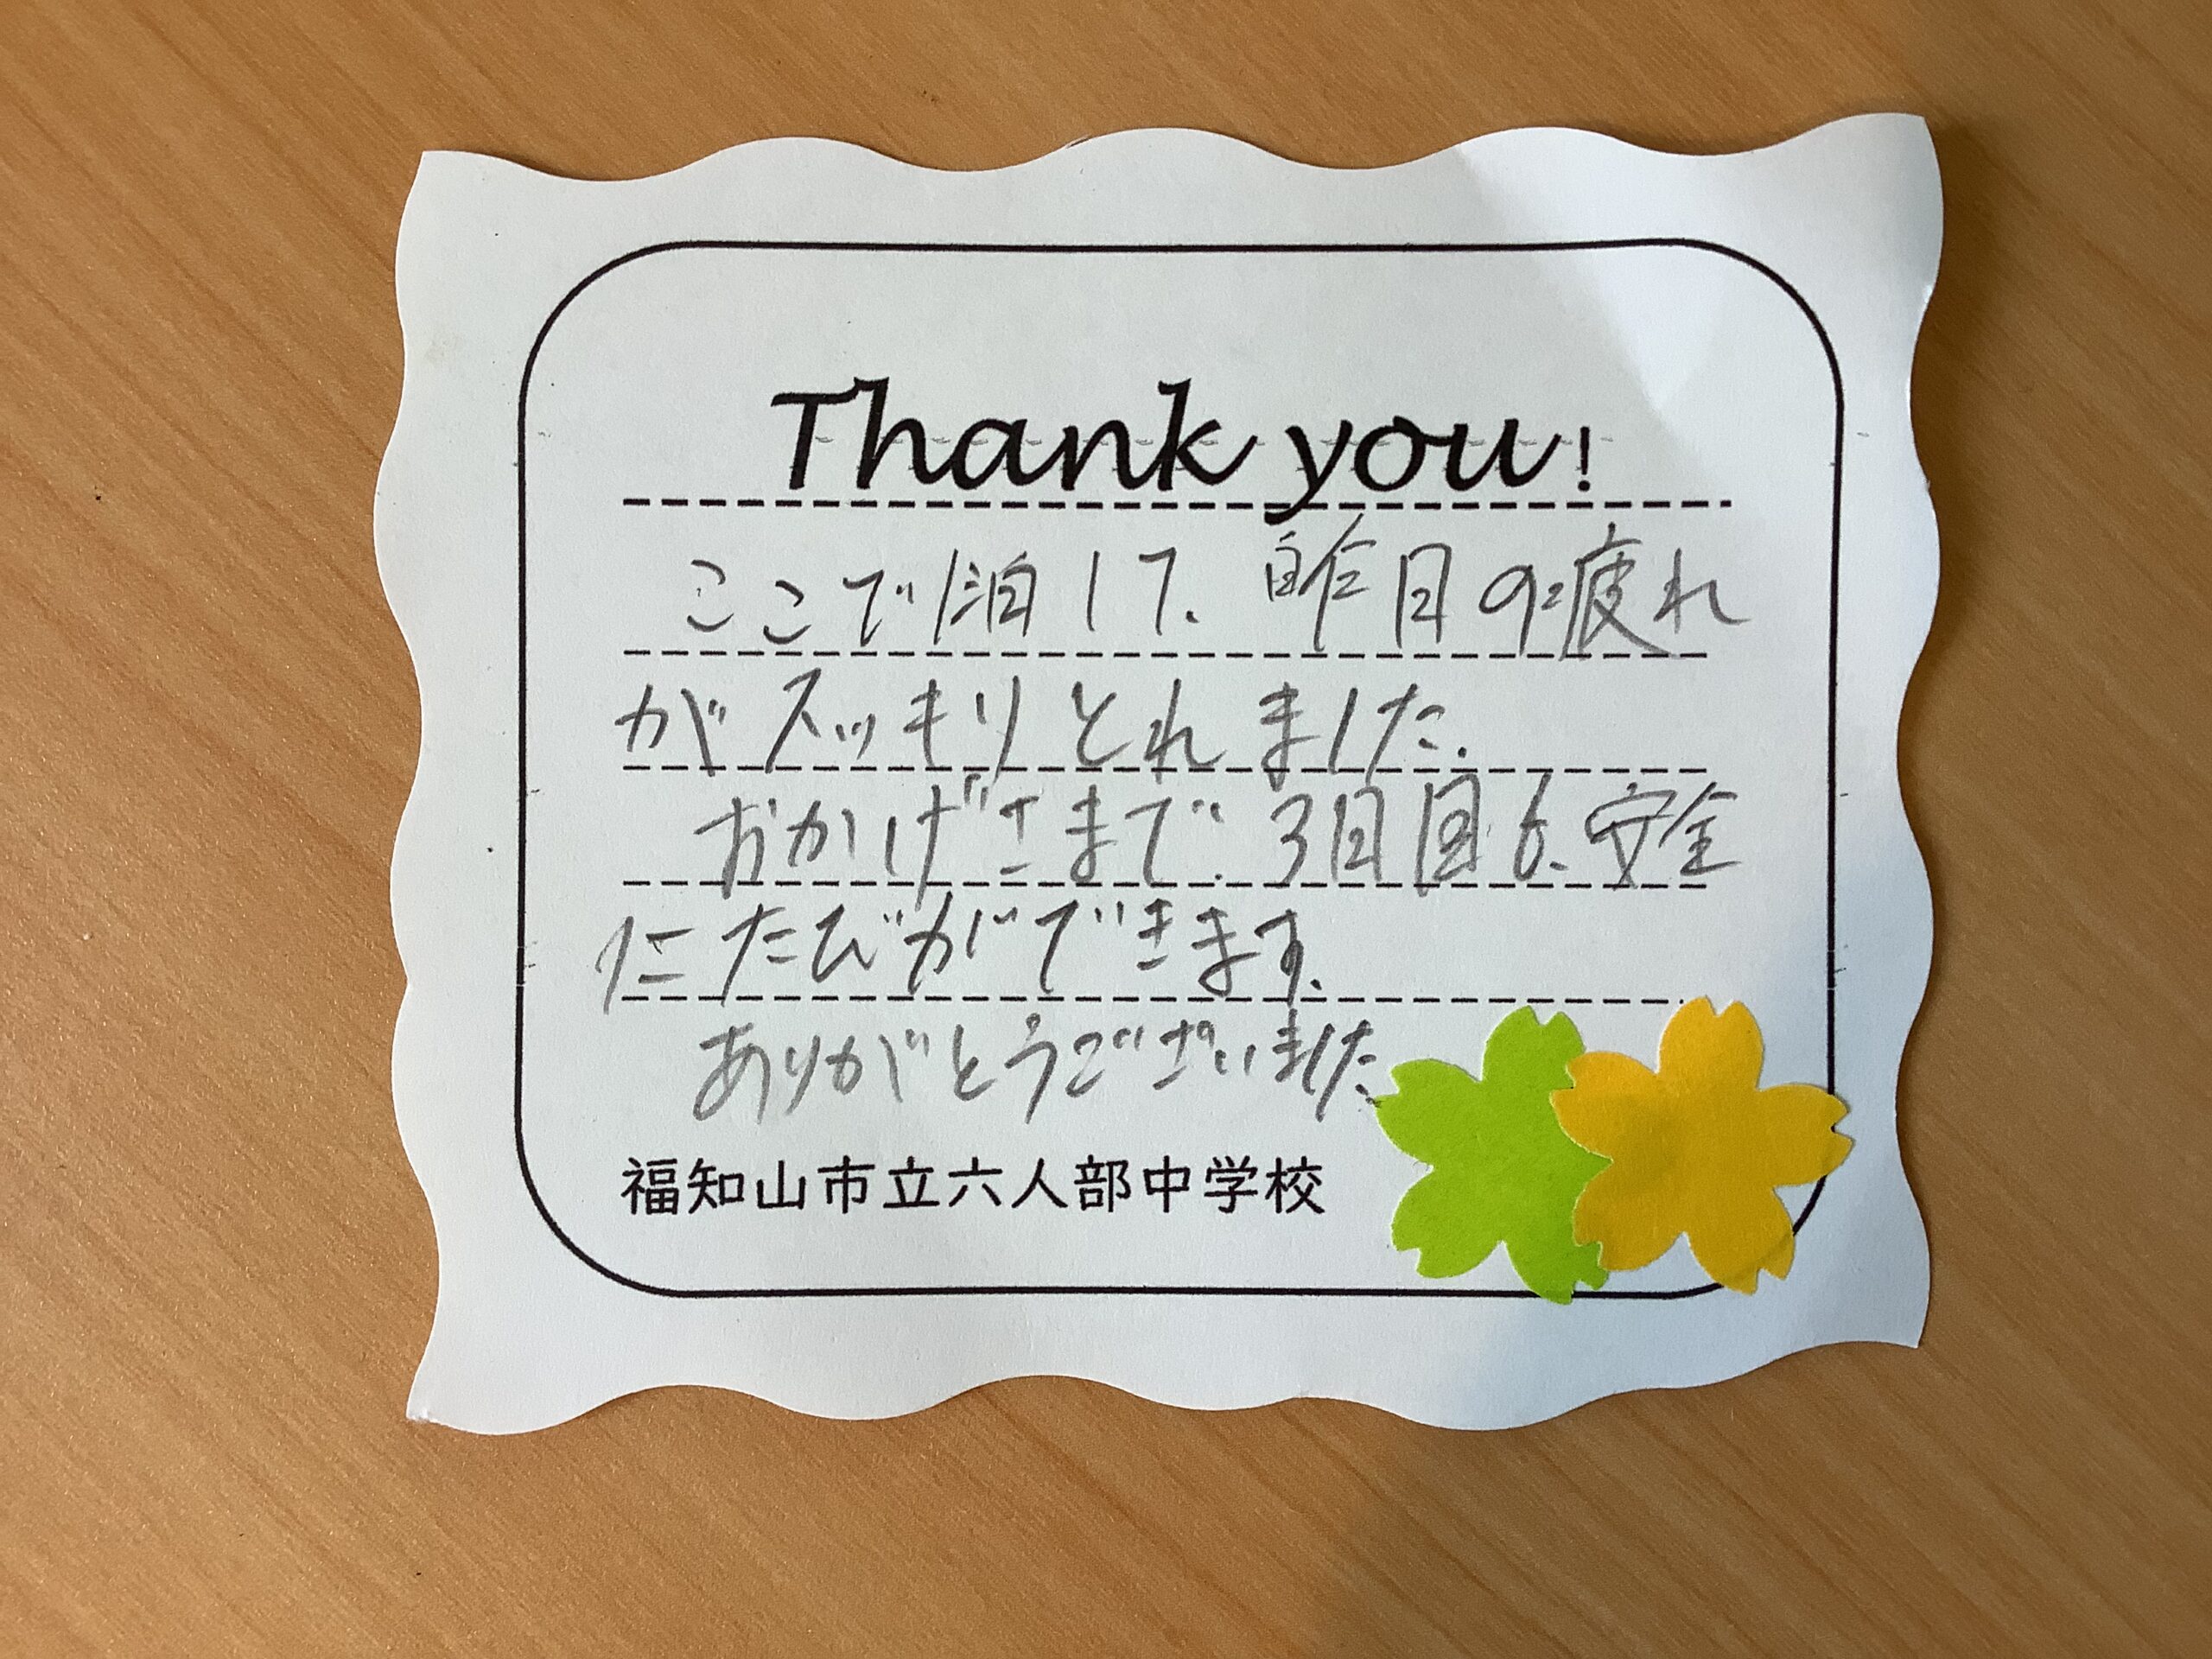 Thank you!
ここで1泊して、昨日の疲れ
がスッキリとれました。
おかげさまで、3日目も、安全
にたびができます。
ありがとうございました
福知山市立六人部中学校